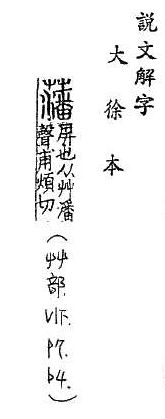 說文解字
大徐本
藩屏也从艸潘聲甫煩切(艸部.VI下.P7.b4.)